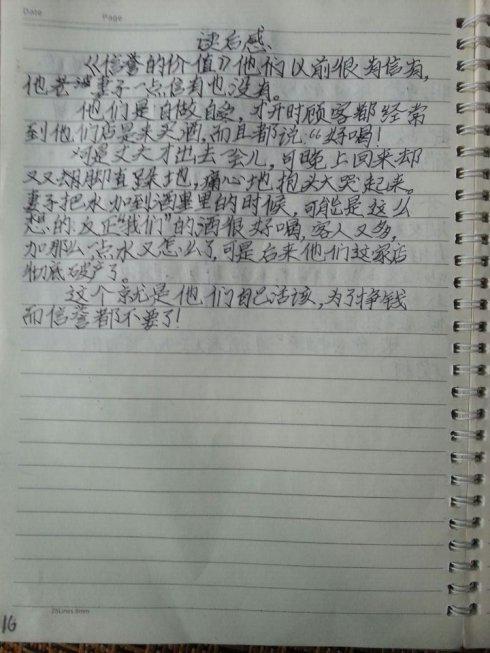 Date
Page
读后感
《信誉的价值》他们以前很有信有,
他老婆妻子一点信有也没有。
他们是自做自受,才开时顾客都经常
到他们店是来买酒,而且都说“好喝!
可是丈夫才出去会儿,可晚上回来却
又又胡脚直跺地,痛心地抱头大哭起来。
妻子把水加到酒里里的时候,可能是这么
想的:反正“我们”的酒很好喝,客人又多,
加那么一点水又怎么了,可是后来他们这家店
彻底破产了。
这个就是他们自己活该,为了挣钱
而信誉都不要了!
25Lines 8mm
16